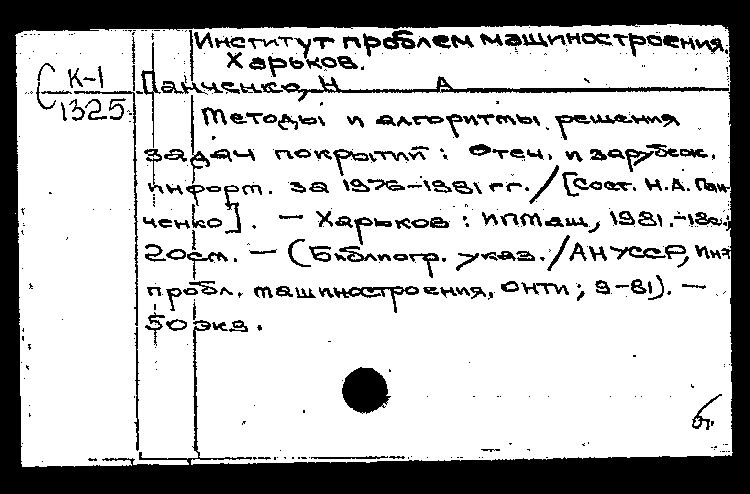 Институт проблем машиностроения.
Харьков.
К-1
Панченко, Н А
1325
Методы и алгоритмы решения
задач покрытий: Отеч. и зарубеж.
информ. за 1976-1981 гг. / [Сост. Н.А. Пан-
ченко]. — Харьков: ипмаш, 1981. - 18с.;
20см. — (Библиогр. указ. / АН УССР, Ин-т
пробл. машиностроения, ОНТИ; 9-81). —
50 экз.